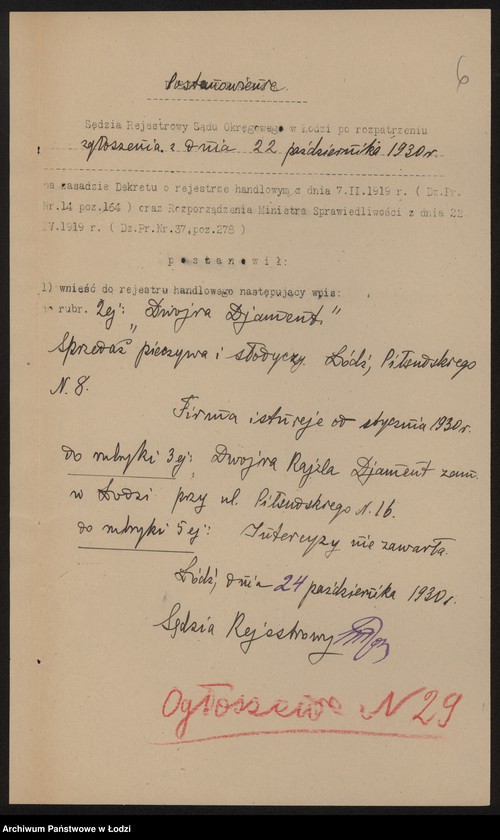 6
Postanowienie.
Sędzia Rejestrowy Sądu Okręgowego w Łodzi po rozpatrzeniu
zgłoszenia z dnia 22 października 1930 r.
na zasadzie Dekretu o rejestrze handlowym z dnia 7.II.1919 r. ( Dz.Pr.
Nr.14 poz.164 ) oraz Rozporządzenia Ministra Sprawiedliwości z dnia 22
IV.1919 r. ( Dz.Pr.Nr.37,poz.278 )
p o s t a n o w i ł :
1) wnieść do rejestru handlowego następujący wpis:
do rubr. 2ej: „Dwojra Djament"
Sprzedaż pieczywa i słodyczy. Łódź, Piłsudskiego
N. 8.
Firma istnieje od stycznia 1930 r.
do rubryki 3ej: Dwojra Rajzla Djament zam.
w Łodzi przy ul. Piłsudskiego N. 16.
do rubryki 5ej: Intercyzy nie zawarła.
Łódź, dnia 24 października 1930 r.
Sędzia Rejestrowy
Ogłoszenie N 29
Archiwum Państwowe w Łodzi